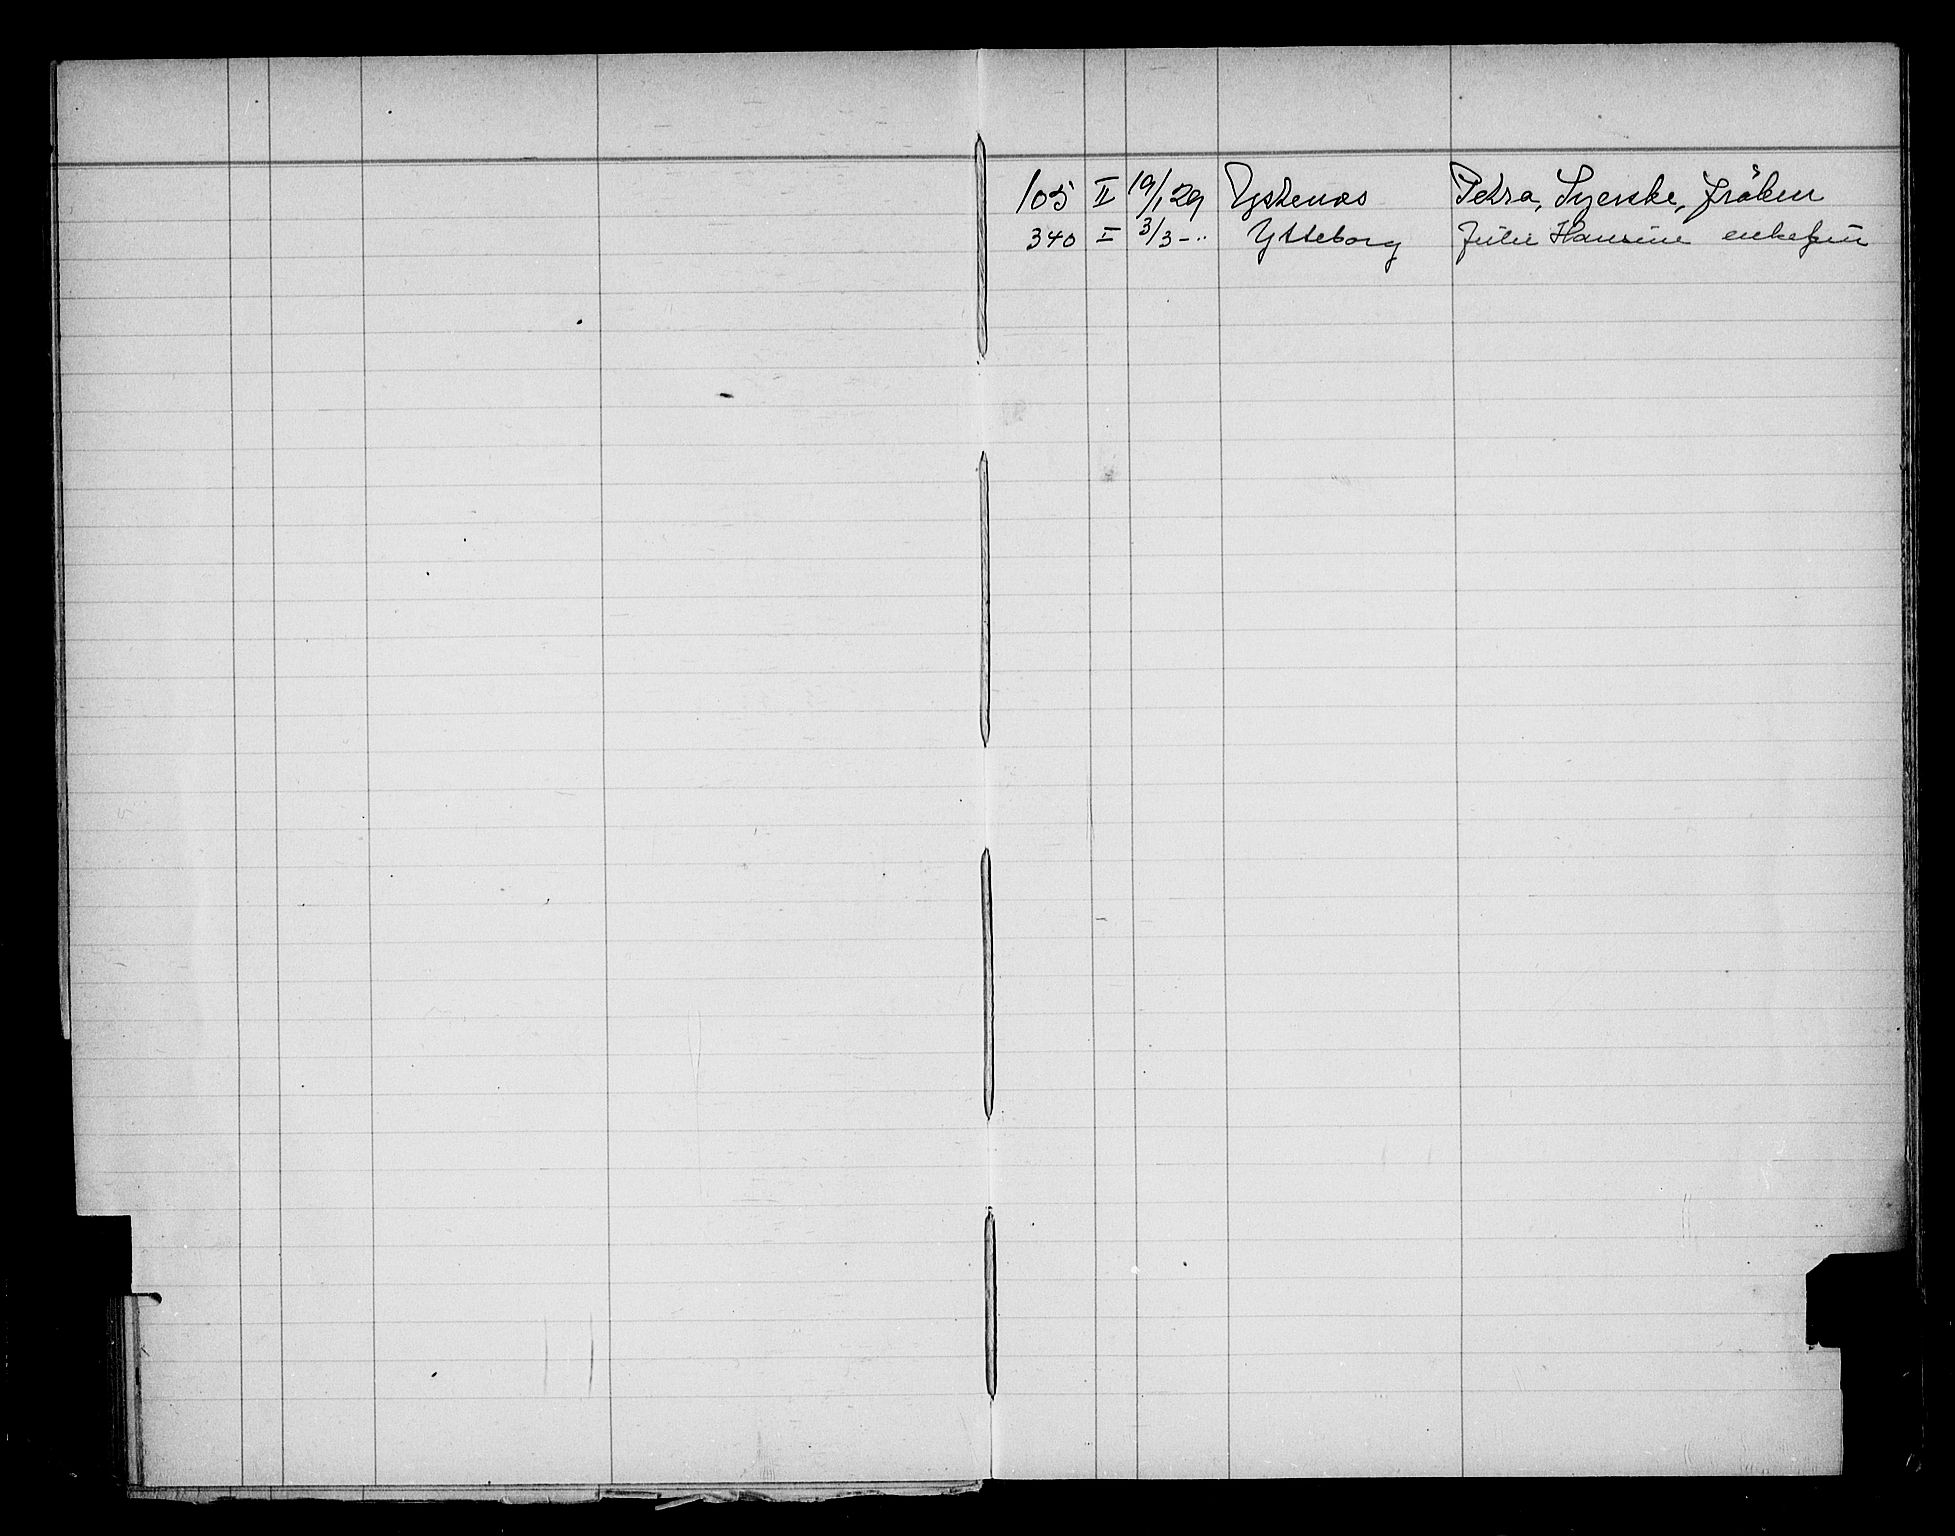 105 II 19/1 29 Ystenæs Petra, Syerske, fröken
340 I 3/3 - " Ytteborg Julie Hansine enkefru